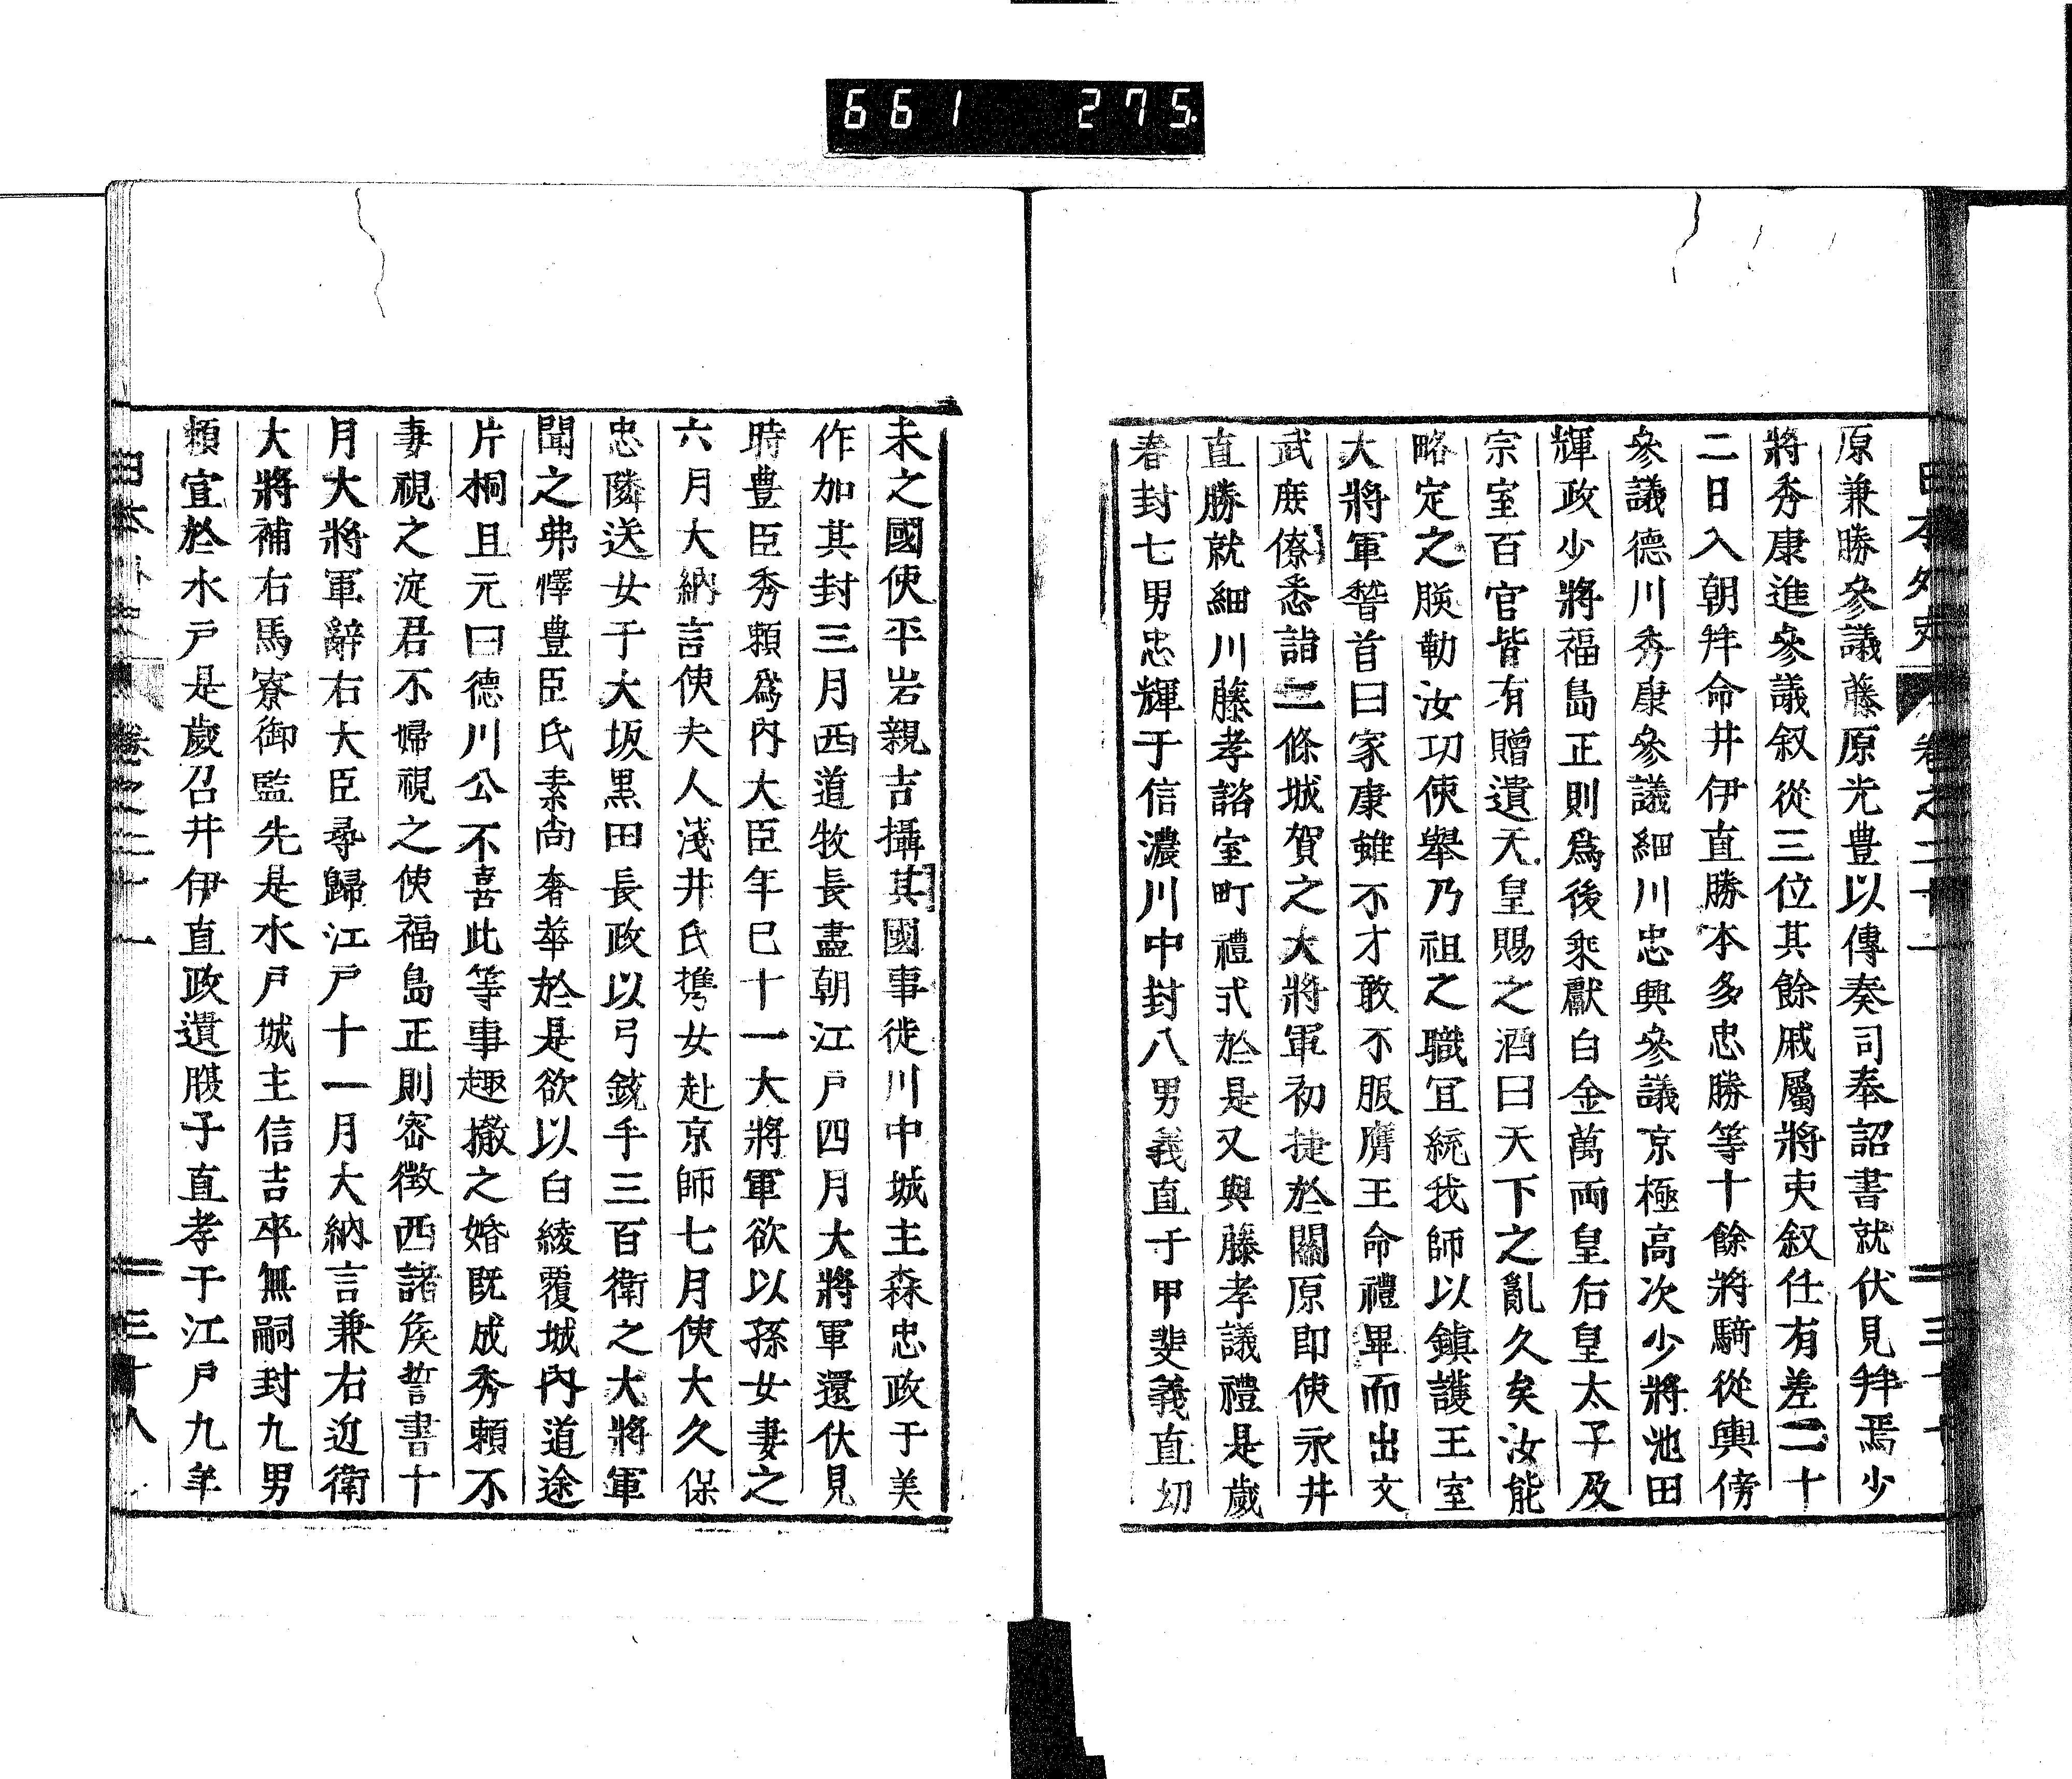 661 275.
日本外史 卷之二十一 三十七
原兼勝參議藤原光豊以傳奏司奉詔書就伏見拜焉少
將秀康進參議叙從三位其餘戚屬將吏叙任有差二十
二日入朝拜命井伊直勝本多忠勝等十餘將騎從輿傍
參議德川秀康參議細川忠興參議京極高次少將池田
輝政少將福島正則爲後乘獻白金萬兩皇后皇太子及
宗室百官皆有贈遺天皇賜之酒曰天下之亂久矣汝能
略定之朕勒汝功使舉乃祖之職宜統我師以鎮護王室
大將軍稽首曰家康雖不才敢不服膺王命禮畢而出文
武庶僚悉詣二條城賀之大將軍初捷於關原即使永井
直勝就細川藤孝諮室町禮式於是又與藤孝議禮是歲
春封七男忠輝于信濃川中封八男義直于甲斐義直幼
未之國使平岩親吉攝其國事徙川中城主森忠政于美
作加其封三月西道牧長盡朝江戸四月大將軍還伏見
時豊臣秀賴爲內大臣年已十一大將軍欲以孫女妻之
六月大納言使夫人淺井氏攜女赴京師七月使大久保
忠隣送女于大坂黑田長政以弓銃手三百衛之大將軍
聞之弗懌豊臣氏素尚奢華於是欲以白綾覆城內道途
片桐且元曰德川公不喜此等事趣撤之婚既成秀賴不
妻視之淀君不婦視之使福島正則密徵西諸矦誓書十
月大將軍辭右大臣尋歸江戸十一月大納言兼右近衛
大將補右馬寮御監先是水戸城主信吉卒無嗣封九男
賴宣於水戸是歲召井伊直政遺腹子直孝于江戸九年
日本外史 卷之二十一 三十八